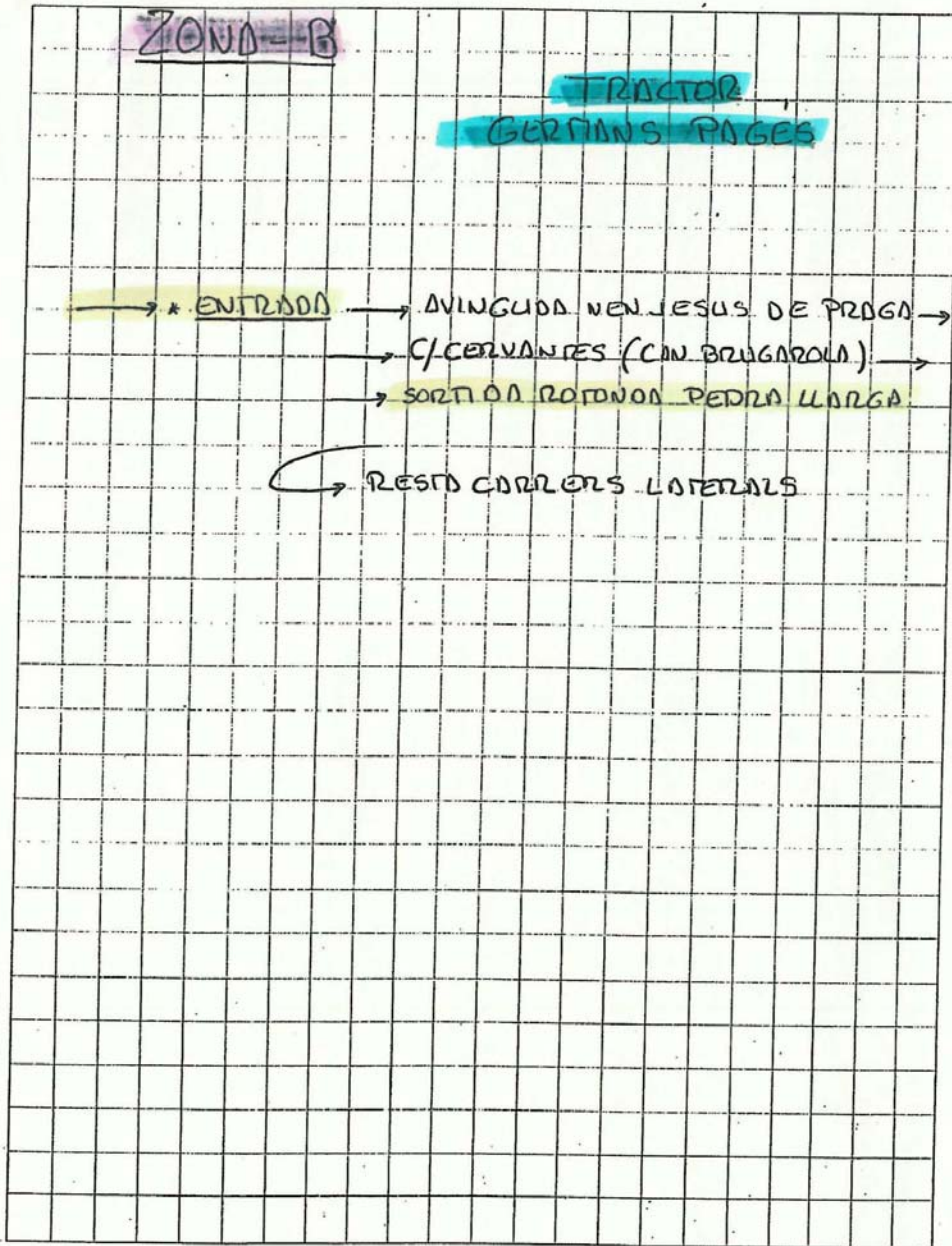 ZONA-B
TRACTOR
GERMANS PAGÈS
→ * ENTRADA → AVINGUDA NEN JESUS DE PRAGA →
→ C/CERVANTES (CAN BRUGAROLA) →
→ SORTIDA ROTONDA PEDRA LLARGA
→ RESTA CARRERS LATERALS